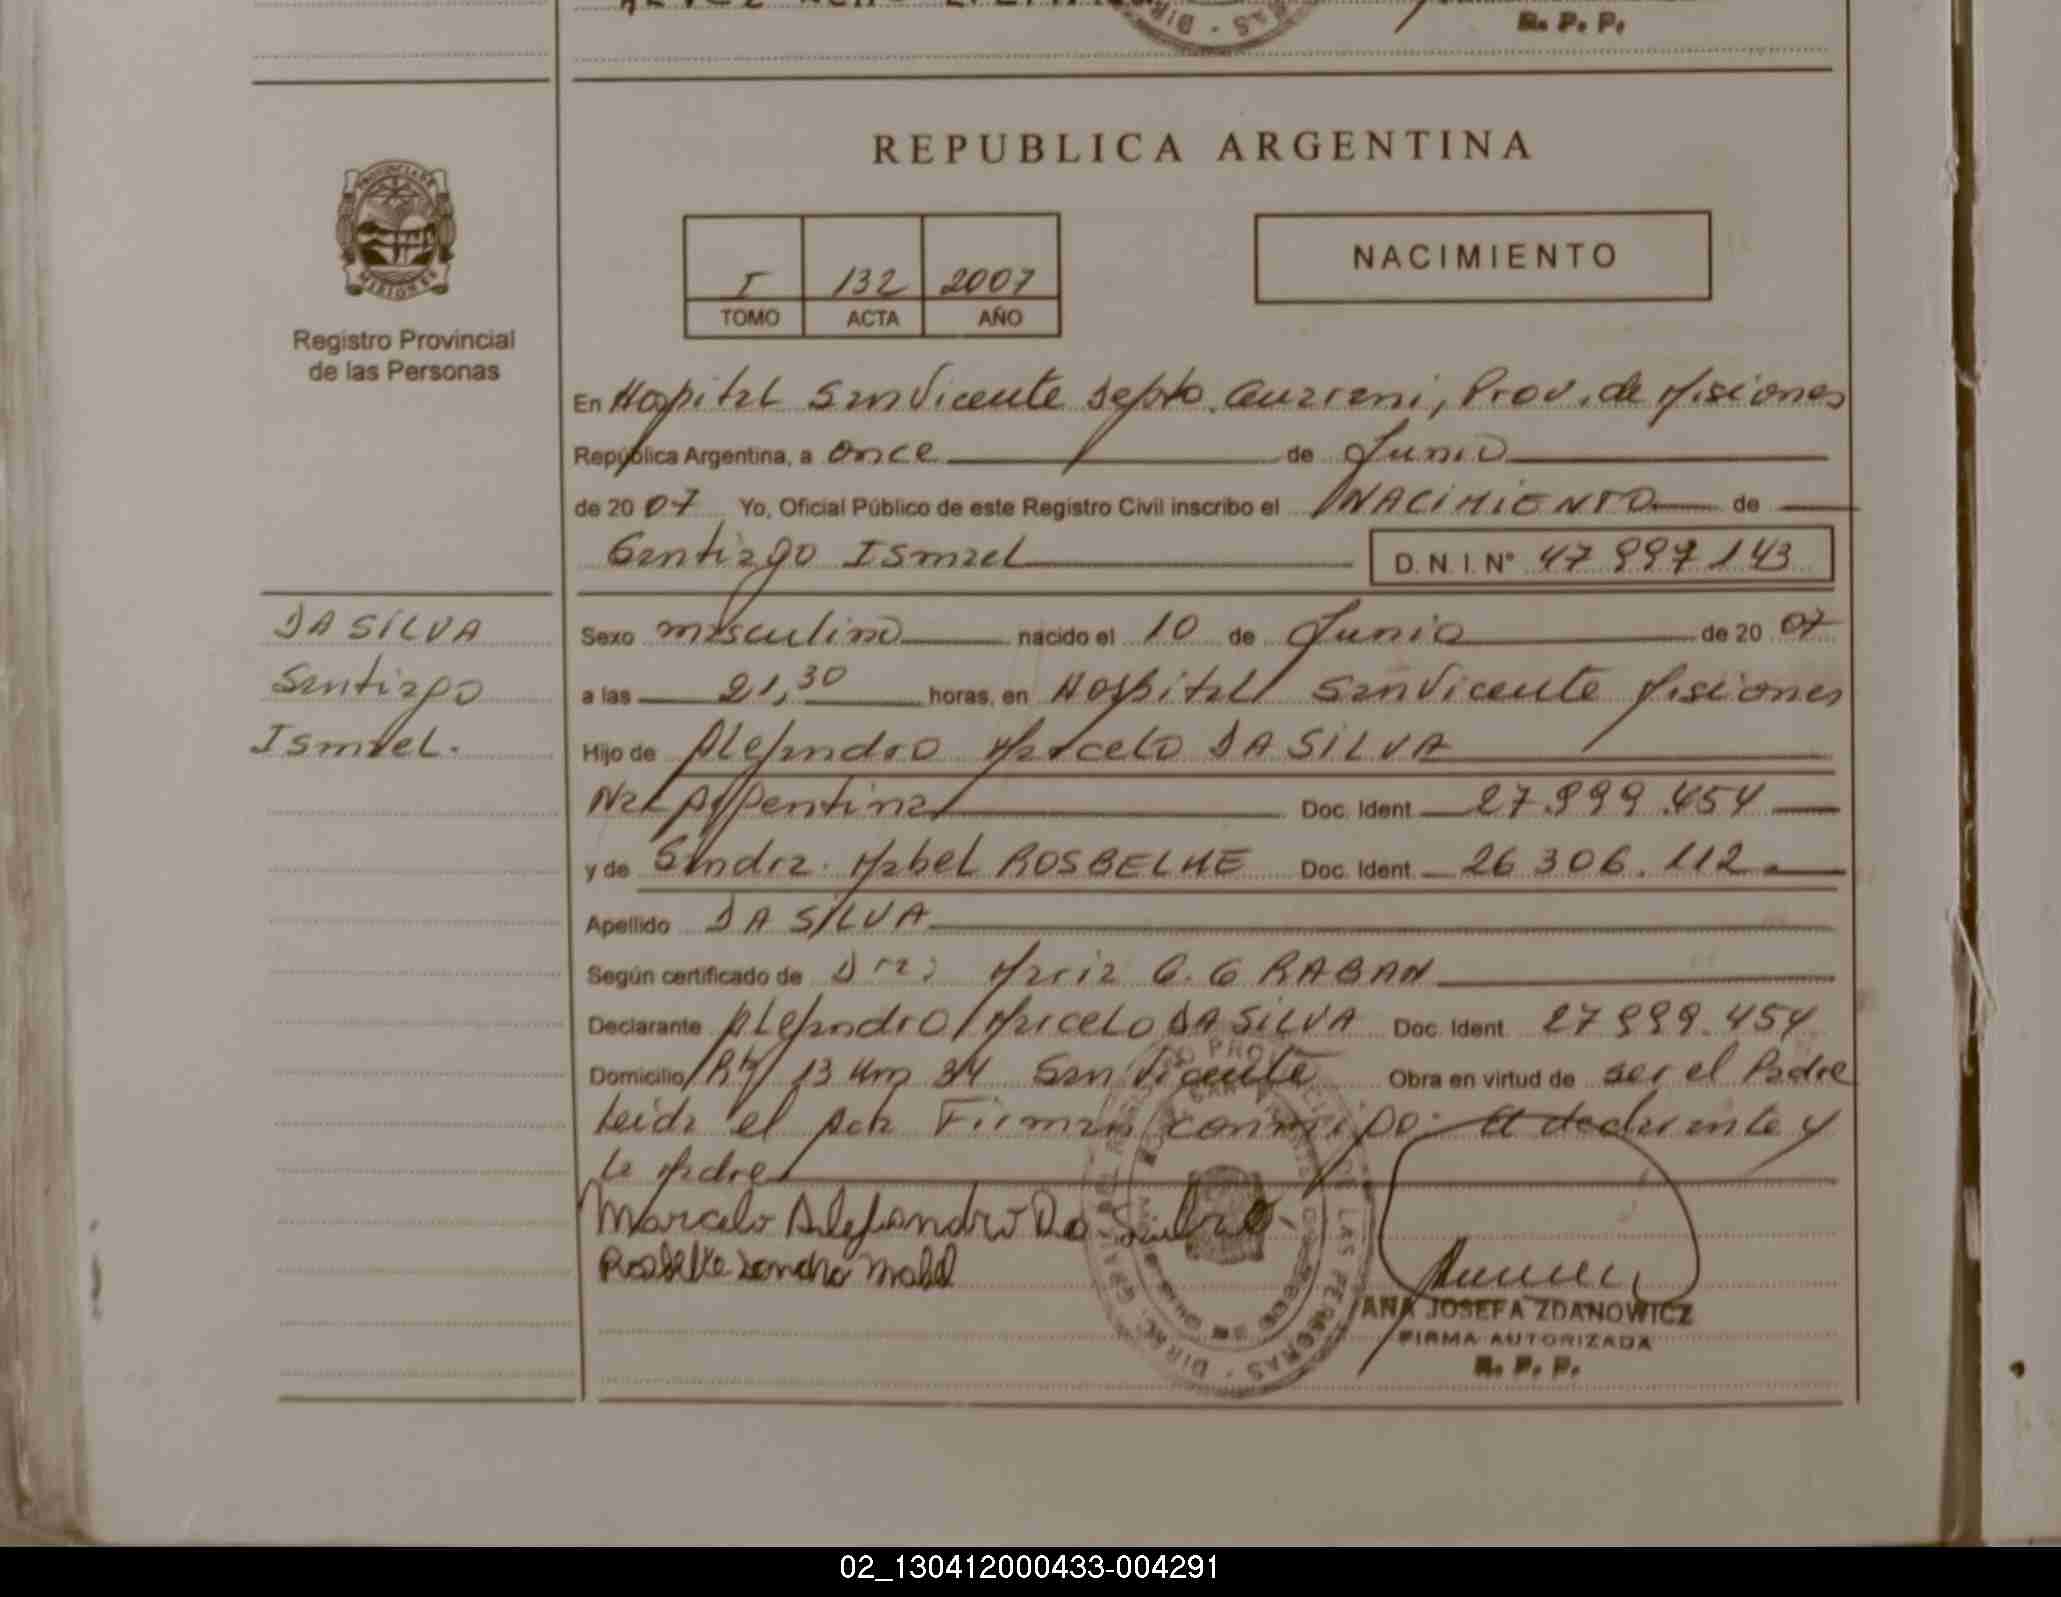 R. P. P.
REPUBLICA ARGENTINA
PROVINCIA DE
MISIONES
Registro Provincial
de las Personas
I 132 2007
TOMO ACTA AÑO
NACIMIENTO
En Hospital San Vicente Depto. Guarani, Prov. de Misiones
República Argentina, a once de Junio
de 2007 Yo, Oficial Público de este Registro Civil inscribo el NACIMIENTO de
Santiago Ismael D. N. I. N° 47 997 143
DA SILVA
Santiago
Ismael.
Sexo masculino nacido el 10 de Junio de 2007
a las 21,30 horas, en Hospital San Vicente Misiones
Hijo de Alejandro Marcelo DA SILVA
Nac Argentina Doc. Ident. 27.999.454
y de Sandra Mabel ROSBELKE Doc. Ident. 26 306.112
Apellido DA SILVA
Según certificado de Dra: Maria G. GRABAN
Declarante Alejandro Marcelo DA SILVA Doc. Ident. 27 999.454
Domicilio Rta 13 Km 34 San Vicente Obra en virtud de ser el Padre
Leida el Acta Firman conmigo: el declarante y
la Madre
Marcelo Alejandro Da Silva
Rosbelke Sandra Mabel
ANA JOSEFA ZDANOWICZ
FIRMA AUTORIZADA
R. P. P.
02_130412000433-004291